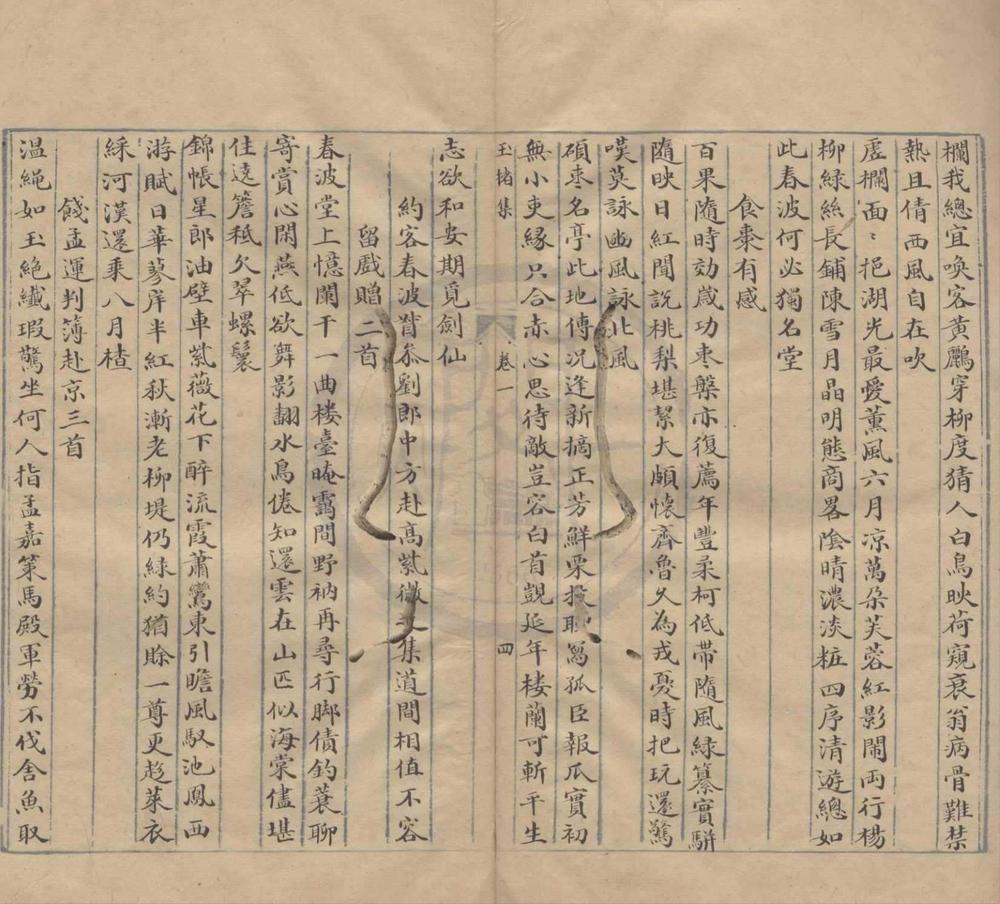 欄我總宜喚客黃鸝穿柳度猜人白鳥映荷窺衰翁病骨難禁
熱且倩西風自在吹
虛欄面〻挹湖光最愛薰風六月凉萬朵芙蓉紅影鬧兩行楊
柳綠絲長鋪陳雪月晶明態商畧陰晴濃淡粧四序清遊總如
此春波何必獨名堂
食棗有感
百果隨時効歲功枣槃亦復薦年豐柔柯低帶隨風綠纂實駢
隨映日紅聞說桃梨堪絜大頗懷齊魯久為戎憂時把玩還驚
嘆莫詠豳風詠北風
碩枣名亭此地傳况逢新摘正芳鮮栗投聊寫孤臣報瓜實初
無小吏緣只合赤心思待敵豈容白首覬延年楼蘭可斬平生
玉楮集
卷一
四
志欲和安期覓劍仙
約客春波劉郎中方赴高紫微集道間相值不容
留戲贈二首
春波堂上憶闌干一曲楼臺晻靄間野衲再尋行脚債釣蓑聊
寄賞心閑燕低欲舞影翻水鳥倦知還雲在山匹似海棠儘堪
佳遠簷秪欠翠螺鬟
錦帳星郎油壁車紫薇花下醉流霞蕭鸞東引瞻風馭池鳳西
游賦日華蓼岸半紅秋漸老柳堤仍綠約猶賒一尊更趁萊衣
綵河漢還乘八月楂
餞孟運判簿赴京三首
温繩如玉絶纖瑕驚坐何人指孟嘉策馬殿軍勞不伐舍魚取